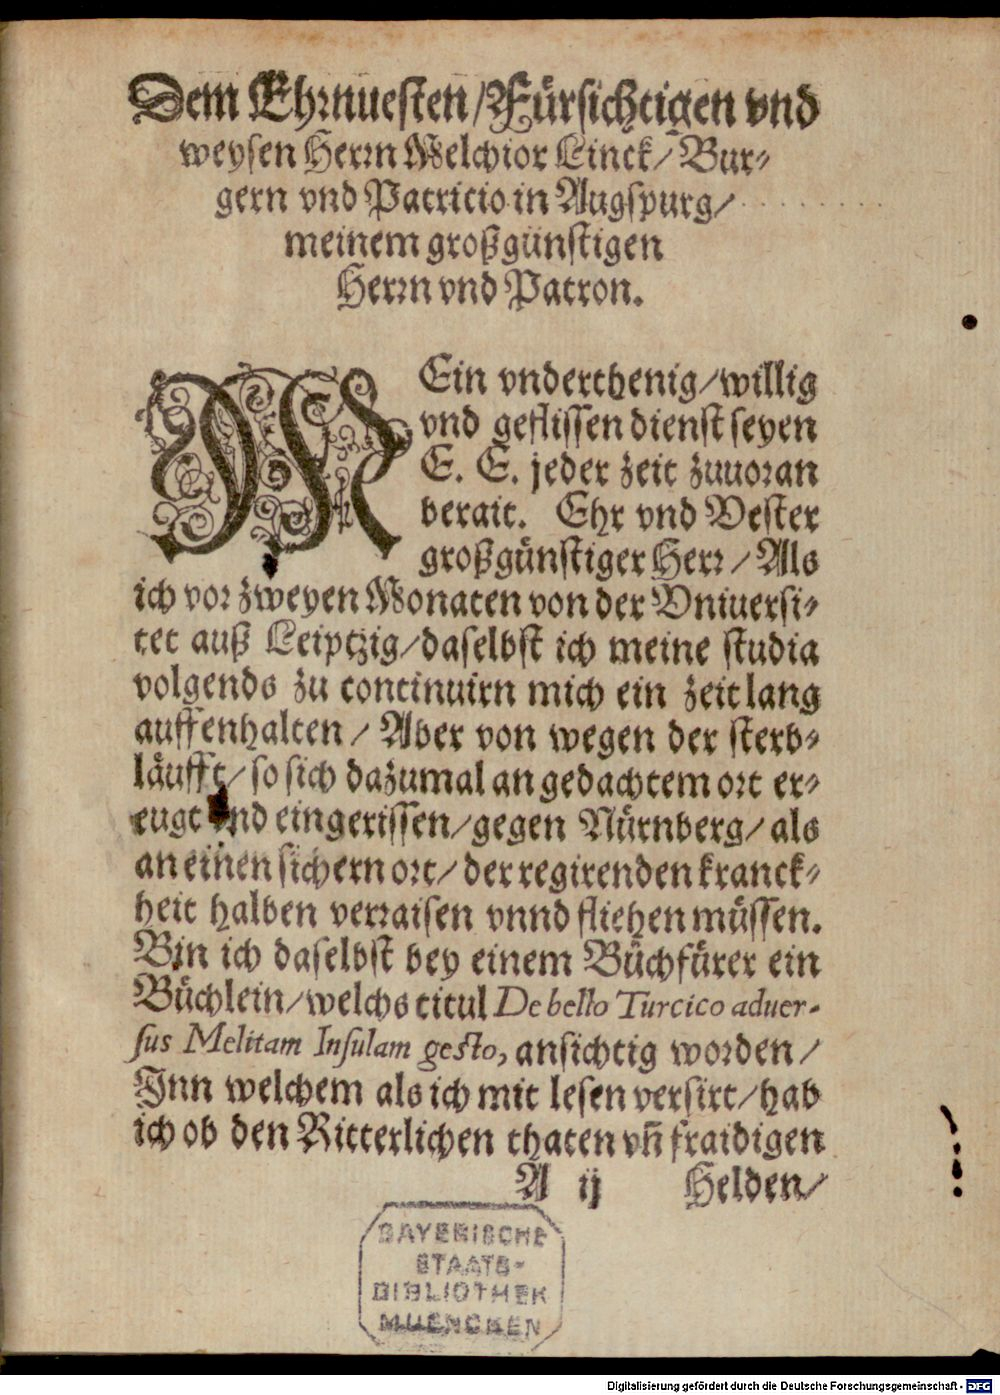 Dem Ehrnuesten/Fürsichtigen vnd
weysen Herrn Melchior Linck/ Bur-
gern vnd Patricio in Augspurg/
meinem großgünstigen
Herrn vnd Patron.
MEin vnderthenig/willig
vnd geflissen dienst seyen
E. E. jeder zeit zuuoran
berait. Ehr vnd Vester
großgünstiger Herr/ Als
ich vor zweyen Monaten von der Vniuersi-
tet auß Leiptzig/daselbst ich meine studia
volgends zu continuirn mich ein zeit lang
auffenhalten/ Aber von wegen der sterb-
läufft/so sich dazumal an gedachtem ort er-
eugt vnd eingerissen/gegen Nürnberg/ als
an einen sichern ort/ der regirenden kranck-
heit halben verraisen vnnd fliehen müssen.
Bin ich daselbst bey einem Büchfürer ein
Büchlein/welchs titul De bello Turcico aduer-
sus Melitam Insulam gesto, ansichtig worden/
Inn welchem als ich mit lesen versirt/hab
ich ob den Ritterlichen thaten vñ fraidigen
A ij Helden/
BAYERISCHE
STAATS-
BIBLIOTHEK
MUENCHEN
Digitalisierung gefördert durch die Deutsche Forschungsgemeinschaft - DFG